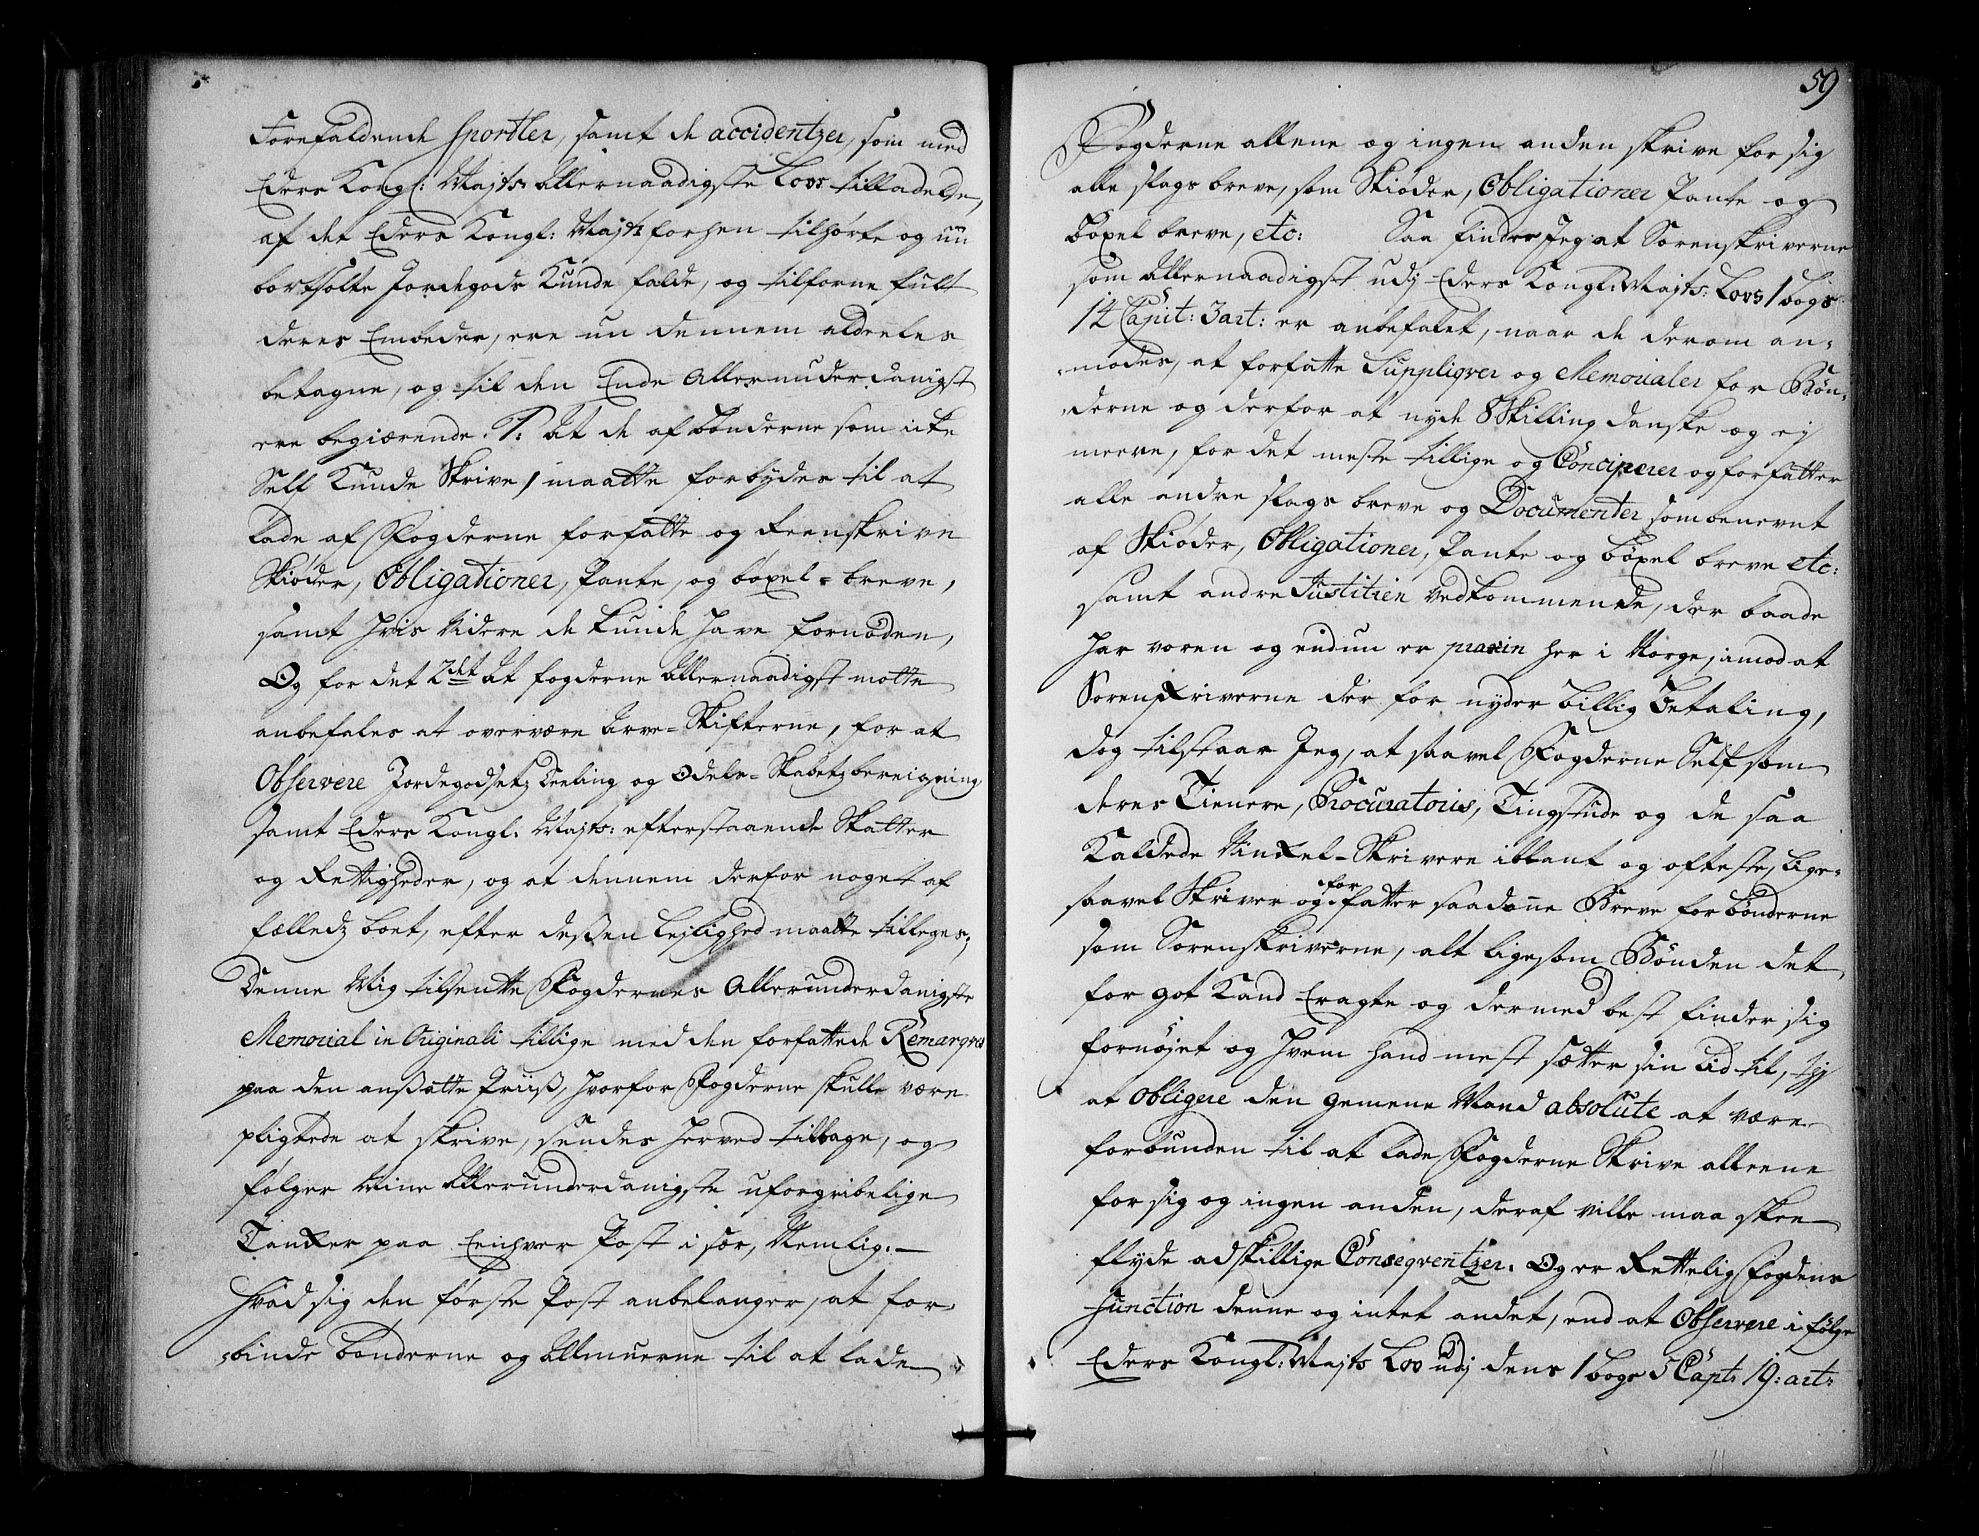 Forefaldende Sportler, samt de accidentzer, som med
Eders Kongl: Mayts: Allernaadigste Lovs tilladelse,
af det Eders Kongl: Mayts forhen tilhörte og nu
bortsolte Jordegods Kunde falde, og tilforne fult
deres Embeder, ere nu dennem aldeeles
betagne, og til den Ende Allerunderdanigst
ere begiærende. 1: At de af bönderne som icke
Self Kunde Skrive, maatte forbydes til at
lade af Fogderne forfatte og Reenskrive
Skiöder, Obligationer, Pante, og böxel-breve,
samt hvis Videre de kunde have fornöden,
Og for det 2det At fogderne Allernaadigst motte
anbefales at overvære Arve-Skifterne, for at
Observere Jordegodsetz Deeling og Odels-Skabetz bereigning
samt Eders Kongl: Mayts: efterstaaende Skatter
og Rettigheder, og at dennem derfor noget af
fælledz boet, efter dessen Lejlighed maatte tilleges;
Denne Mig tilsentte Fogdernes Allerunderdanigste
Memorial in Originali tillige med den forfattede Remarqve
paa den ansatte Priiss, hvorfor Fogderne skulle være
pligtede at skrive, sendes herved tilbage, og
fölger Mine Allerunderdanigste uforgribelige
Tanker paa Eenhver Post i sær, Nemlig:
Hvad sig den förste Post anbelanger, at for-
binde bönderne og Allmuerne til at lade
59
Fogderne allene og ingen anden skrive for sig
alle slags breve, som Skiöder, Obligationer Pante og
böxel breve, etc: Saa finder Jeg at Sorenskriverne
som Allernaadigst udj Eders Kongl: Mayts: Lovs 1 bogs
12 Capit: 3 art: er anbefalet, naar de derom an-
modes, at forfatte Suppliqver og Memorialer for Bön-
derne og derfor at nyde 8 Skilling danske og ej
meere, for det meste tillige og Conciperer og forfatter
alle andre slags breve og Documenter som benevnt
af Skiöder, Obligationer, Pante og böxel breve etc:
samt andre Justitien vedkommende, der baade
har voren og endnu er praxin her i Norge, imod at
Sorenskriverne der for nyder billig Betaling,
dog tilstaar Jeg, at saavel Fogderne Self som
deres Tienere, Procuratoris, Tingstude og de saa
Kaldede Vinkel-Skrivere iblant og ofteste, lige-
saavel Skriver og forfatter saadanne Breve for bönderne
som Sorenskriverne, alt ligesom Bönden det
for got Kand Eragte og dermed best finder sig
fornöjet og hvem hand mest sætter sin Lid til, thj
at Obligere den gemene Mand absolute at være
forbunden til at lade Fogderne Skrive alleene
for sig og ingen anden, deraf ville maa skee
flyde adskillige Conseqventzer. Og er Rettelig Fogdens
Function denne og intet andet, end at Observere i fölge
Eders Kongl: Mayts Lov udj dens 1 bogs 5 Capt: 19: art: